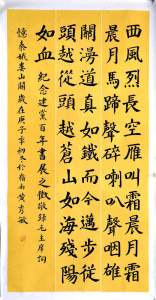 西風烈長空雁叫霜晨月霜
晨月馬蹄聲碎喇叭聲咽雄
關漫道真如鐵而今邁步從
頭越從頭越蒼山如海殘陽
如血 紀念建黨百年書展之徵敬錄毛主席詞
憶秦娥婁山關歲在庚子年初冬於南黃敏